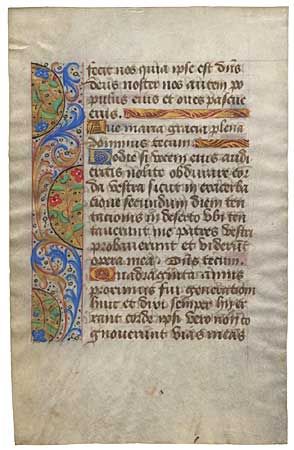 fecit nos quia ipse est dn̄s
deus noster nos autem po
pulus eius et oues pascue
eius.
Aue maria gracia plena
dominus tecum
Hodie si vocem eius audi
eritis nolite obdurare cor
da vestra sicut in exacerba
cione secundum diem ten
tacionis in deserto vbi ten
tauerunt me patres vestri
probauerunt et viderunt
opera mea. Dn̄s tecum.
Quadraginta annis
proximus fui generationi
huic et dixi semper hii er
rant corde ipsi vero non co
gnouerunt vias meas